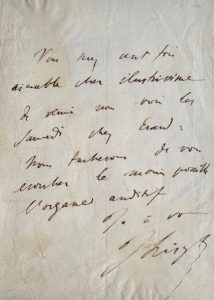 Vous my ont fois
aimable cher illustrissime
de venir nous voir les
Samedi chez Erard:
Nous tacherons de vous
écorcher le moins possible
l'organe auditif
à vous
FLiszt